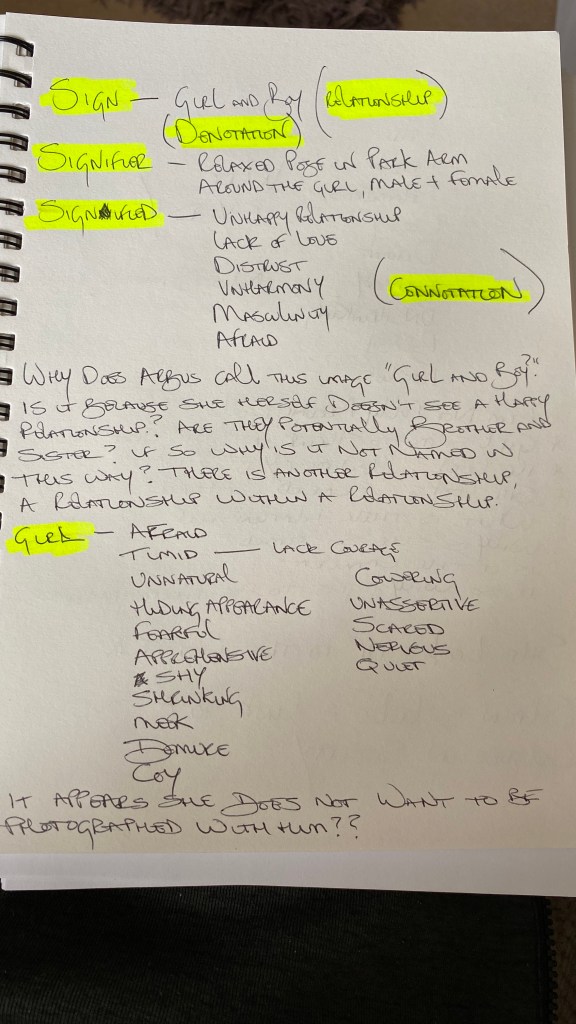 SIGN — GIRL AND BOY (RELATIONSHIP)
(DENOTATION)
SIGNIFIER — RELAXED POSE IN PARK ARM
AROUND THE GIRL, MALE + FEMALE
SIGNIFIED — UNHAPPY RELATIONSHIP
LACK OF LOVE
DISTRUST
UNHARMONY (CONNOTATION)
MASCULINITY
AFRAID
WHY DOES ARBUS CALL THIS IMAGE "GIRL AND BOY?"
IS IT BECAUSE SHE HERSELF DOESN'T SEE A HAPPY
RELATIONSHIP? ARE THEY POTENTIALLY BROTHER AND
SISTER? IF SO WHY IS IT NOT NAMED IN
THIS WAY? THERE IS ANOTHER RELATIONSHIP,
A RELATIONSHIP WITHIN A RELATIONSHIP.
GIRL — AFRAID
TIMID — LACK COURAGE
UNNATURAL COWERING
HIDING APPEARANCE UNASSERTIVE
FEARFUL SCARED
APPREHENSIVE NERVOUS
SHY QUIET
SHRINKING
MEEK
DEMURE
COY
IT APPEARS SHE DOES NOT WANT TO BE
PHOTOGRAPHED WITH HIM??